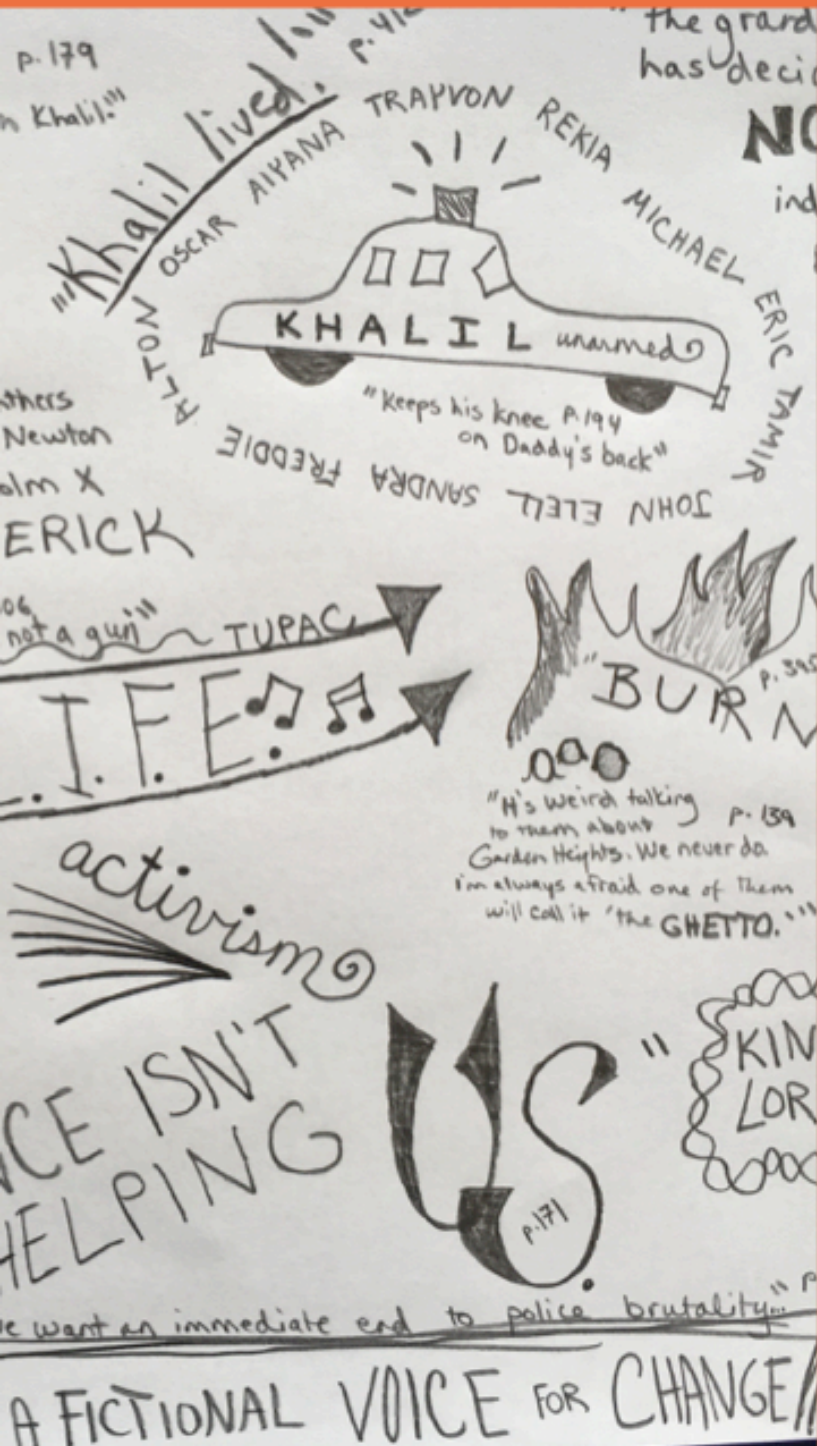 p.179
Khalil."'
"'Khalil lived!
the grand
has deci
NO
ind
OSCAR AIYANA TRAYVON REKIA MICHAEL ERIC TAMIR JOHN EZELL SANDRA FREDDIE ALTON
KHALIL unarmed
"Keeps his knee P.194
on Daddy's back"
thers
Newton
olm X
ERICK
06
not a gun" TUPAC
.I.F.E.
"BURN
p.395
"It's weird talking
to them about p.139
Garden Heights. We never do.
I'm always afraid one of them
will call it 'the GHETTO.'"
activism
CE ISN'T
HELPING
US."
p.171
KIN
LOR
e want an immediate end to police brutality..." p
A FICTIONAL VOICE FOR CHANGE